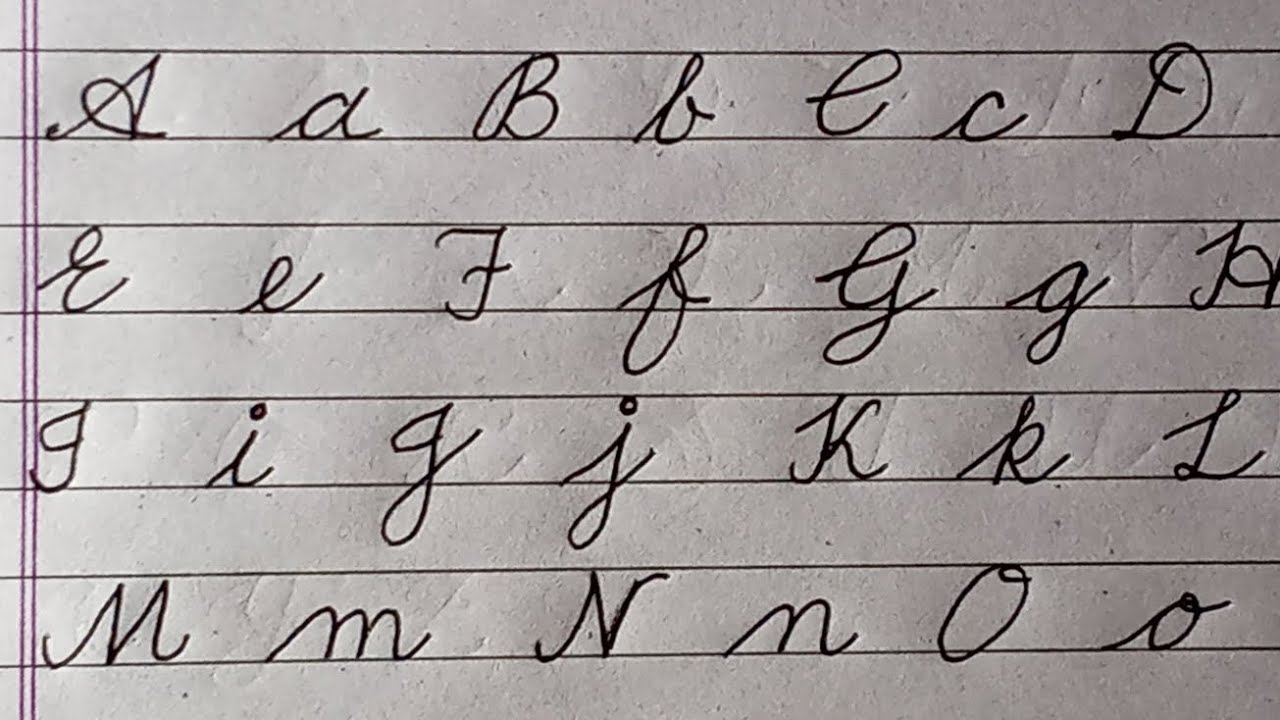 A a B b C c D
E e F f G g H
I i J j K k L
M m N n O o